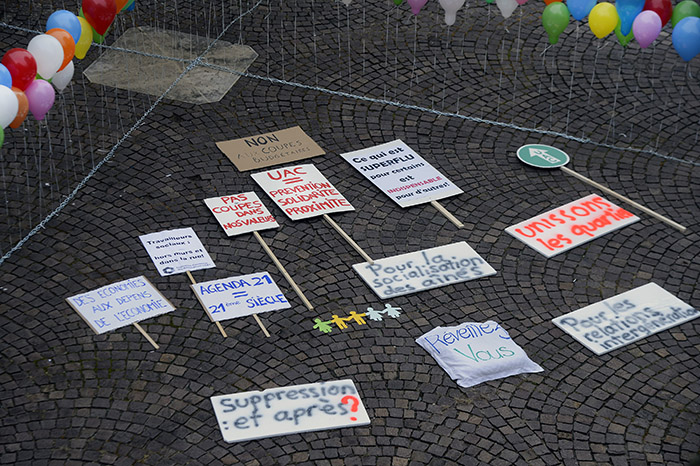 NON
AUX COUPES
BUDGETAIRES
UAC =
PRÉVENTION
SOLIDARITÉ
PROXIMITÉ
Ce qui est
SUPERFLU
pour certains
est
INDISPENSABLE
pour d'autres!
PAS DE
COUPES DANS
NOS VALEURS
Travailleurs
sociaux :
hors murs et
dans la rue!
UNISSONS les
les quartiers
Pour la
socialisation
des aînés
DES ECONOMIES
AUX DEPENS
DE L'ÉCONOMIE
AGENDA 21
=
21ème SIÈCLE
Pour les
relations
intergénération
Réveillez
Vous
Suppression
: et après?